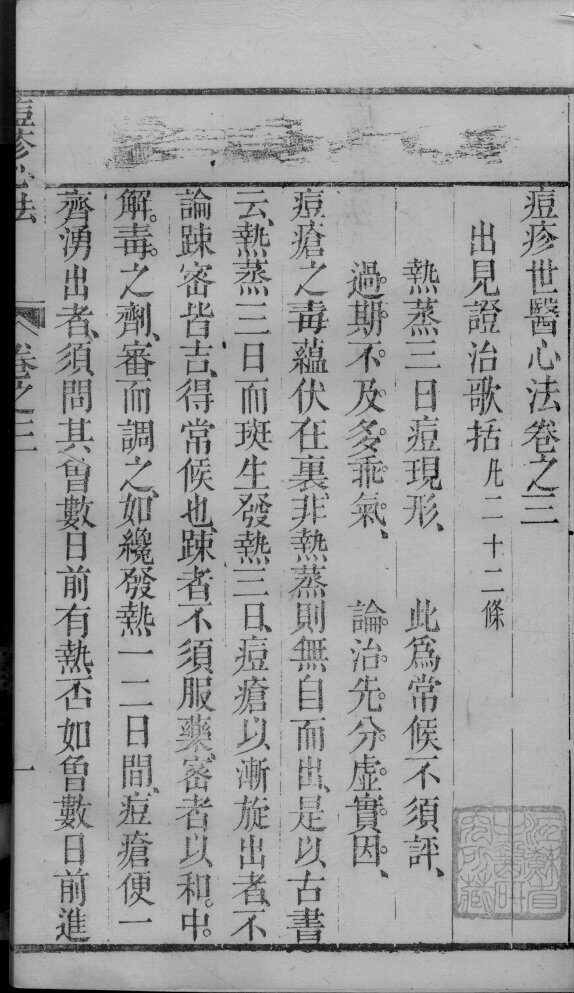 痘疹世醫心法卷之三
出見證治歌括凡二十二條
熱蒸三日痘現形、 此為常候不須評、
過期不及多乖氣、 論治先分虛實因、
痘瘡之毒蘊伏在裏、非熱蒸則無自而出、是以古書
云、熱蒸三日而斑生、發熱三日、痘瘡以漸旋出者、不
論踈密皆吉、得常候也、踈者不須服藥、密者以和中
解毒之劑、審而調之、如纔發熱一二日間、痘瘡便一
齊湧出者、須問其曾數日前有熱否、如曾數日前進
痘疹心法
卷之三
一